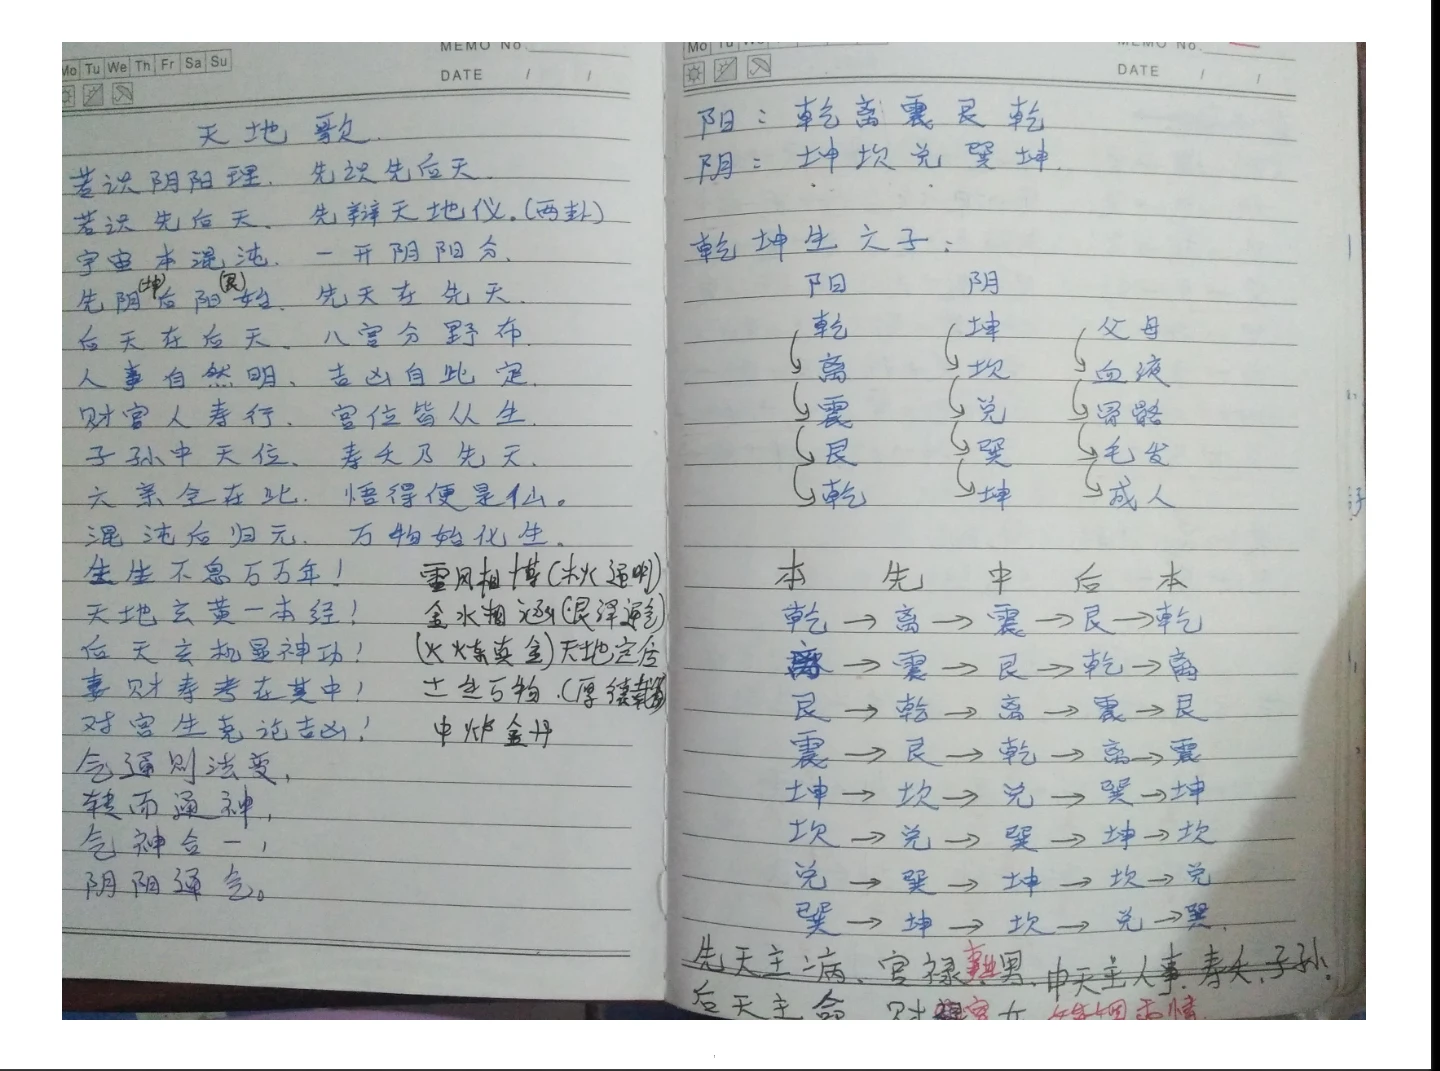 MEMO No.
Mo Tu We Th Fr Sa Su
DATE / /
天地歌
若识阴阳理、先识先后天.
若识先后天、先辩天地仪.(两卦)
宇宙本混沌、一开阴阳分.
(坤) (艮)
先阴后阳始、先天在先天.
后天在后天、八宫分野布.
人事自然明、吉凶自此定.
财官人寿行、宫位皆从生.
子孙中天位、寿夭乃先天.
六亲全在此、悟得便是仙。
混沌后归元、万物始化生.
生生不息万万年! 雷风相博(木火通明)
天地玄黄一本经! 金水相涵(艮泽通气)
后天玄机显神功! (火炼真金)天地定后
妻财寿考在其中! 土生万物.(厚德载
对宫生克论吉凶! 中炉金丹
气通则法变,
转而通神,
气神合一,
阴阳通气。
Mo Tu We
MEMO No.
DATE / /
阳:乾离震艮乾
阴:坤坎兑巽坤.
乾坤生六子:
阳 阴
乾 坤 父母
离 坎 血液
震 兑 骨骼
艮 巽 毛发
乾 坤 成人
本 先 中 后 本
乾→离→震→艮→乾
离→震→艮→乾→离
艮→乾→离→震→艮
震→艮→乾→离→震
坤→坎→兑→巽→坤
坎→兑→巽→坤→坎
兑→巽→坤→坎→兑
巽→坤→坎→兑→巽.
先天主病、官禄 男、中天主人事、寿夭、子孙.
后天主命 财 女